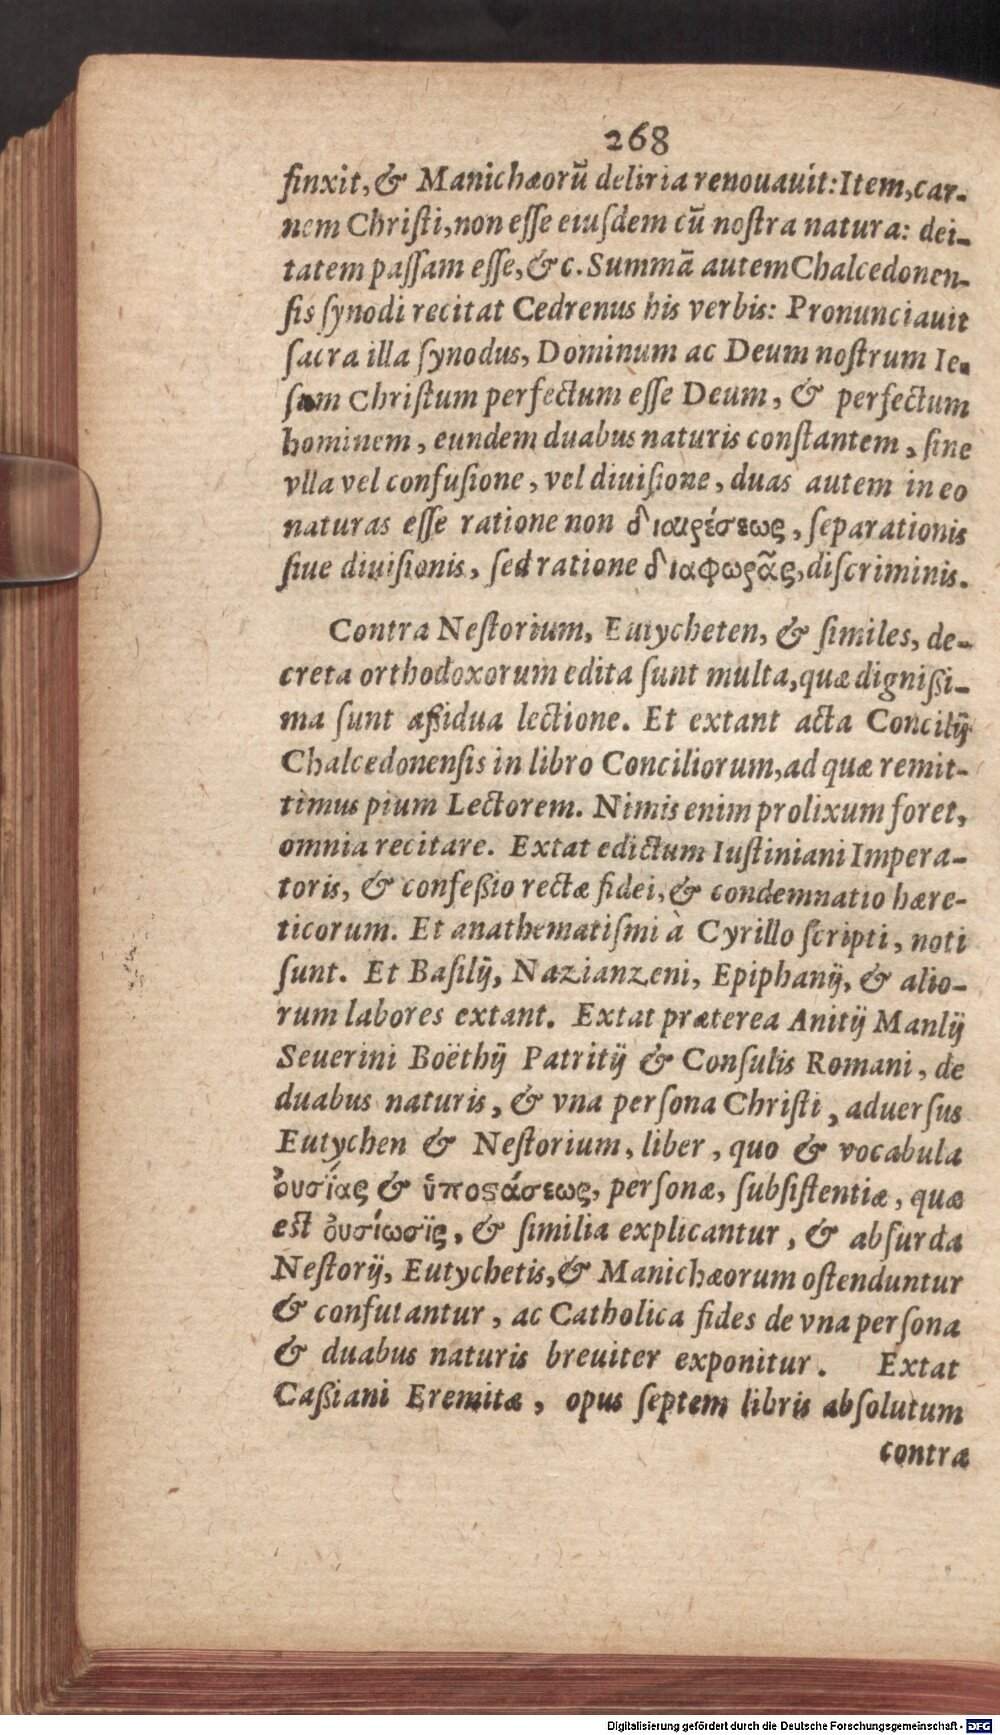 268
finxit, & Manichæorũ deliria renouauit: Item, car-
nem Christi, non esse eiusdem cũ nostra natura: dei-
tatem passam esse, &c. Summã autem Chalcedonen-
sis synodi recitat Cedrenus his verbis: Pronunciauit
sacra illa synodus, Dominum ac Deum nostrum Ie-
sum Christum perfectum esse Deum, & perfectum
hominem, eundem duabus naturis constantem, sine
vlla vel confusione, vel diuisione, duas autem in eo
naturas esse ratione non διαιρέσεως, separationis
siue diuisionis, sed ratione διαφωρᾶς, discriminis.
Contra Nestorium, Eutycheten, & similes, de-
creta orthodoxorum edita sunt multa, quæ dignißi-
ma sunt aßidua lectione. Et extant acta Concilij
Chalcedonensis in libro Conciliorum, ad quæ remit-
timus pium Lectorem. Nimis enim prolixum foret,
omnia recitare. Extat edictum Iustiniani Impera-
toris, & confeßio rectæ fidei, & condemnatio hære-
ticorum. Et anathematismi à Cyrillo scripti, noti
sunt. Et Basilij, Nazianzeni, Epiphanij, & alio-
rum labores extant. Extat præterea Anitij Manlij
Seuerini Boëthij Patritij & Consulis Romani, de
duabus naturis, & vna persona Christi, aduersus
Eutychen & Nestorium, liber, quo & vocabula
ὀυσΐας & ὑποϛάσεως, personæ, subsistentiæ, quæ
est ὀυσίωσϊς, & similia explicantur, & absurda
Nestorij, Eutychetis, & Manichæorum ostenduntur
& confutantur, ac Catholica fides de vna persona
& duabus naturis breuiter exponitur. Extat
Caßiani Eremitæ, opus septem libris absolutum
contra
Digitalisierung gefördert durch die Deutsche Forschungsgemeinschaft - DFG